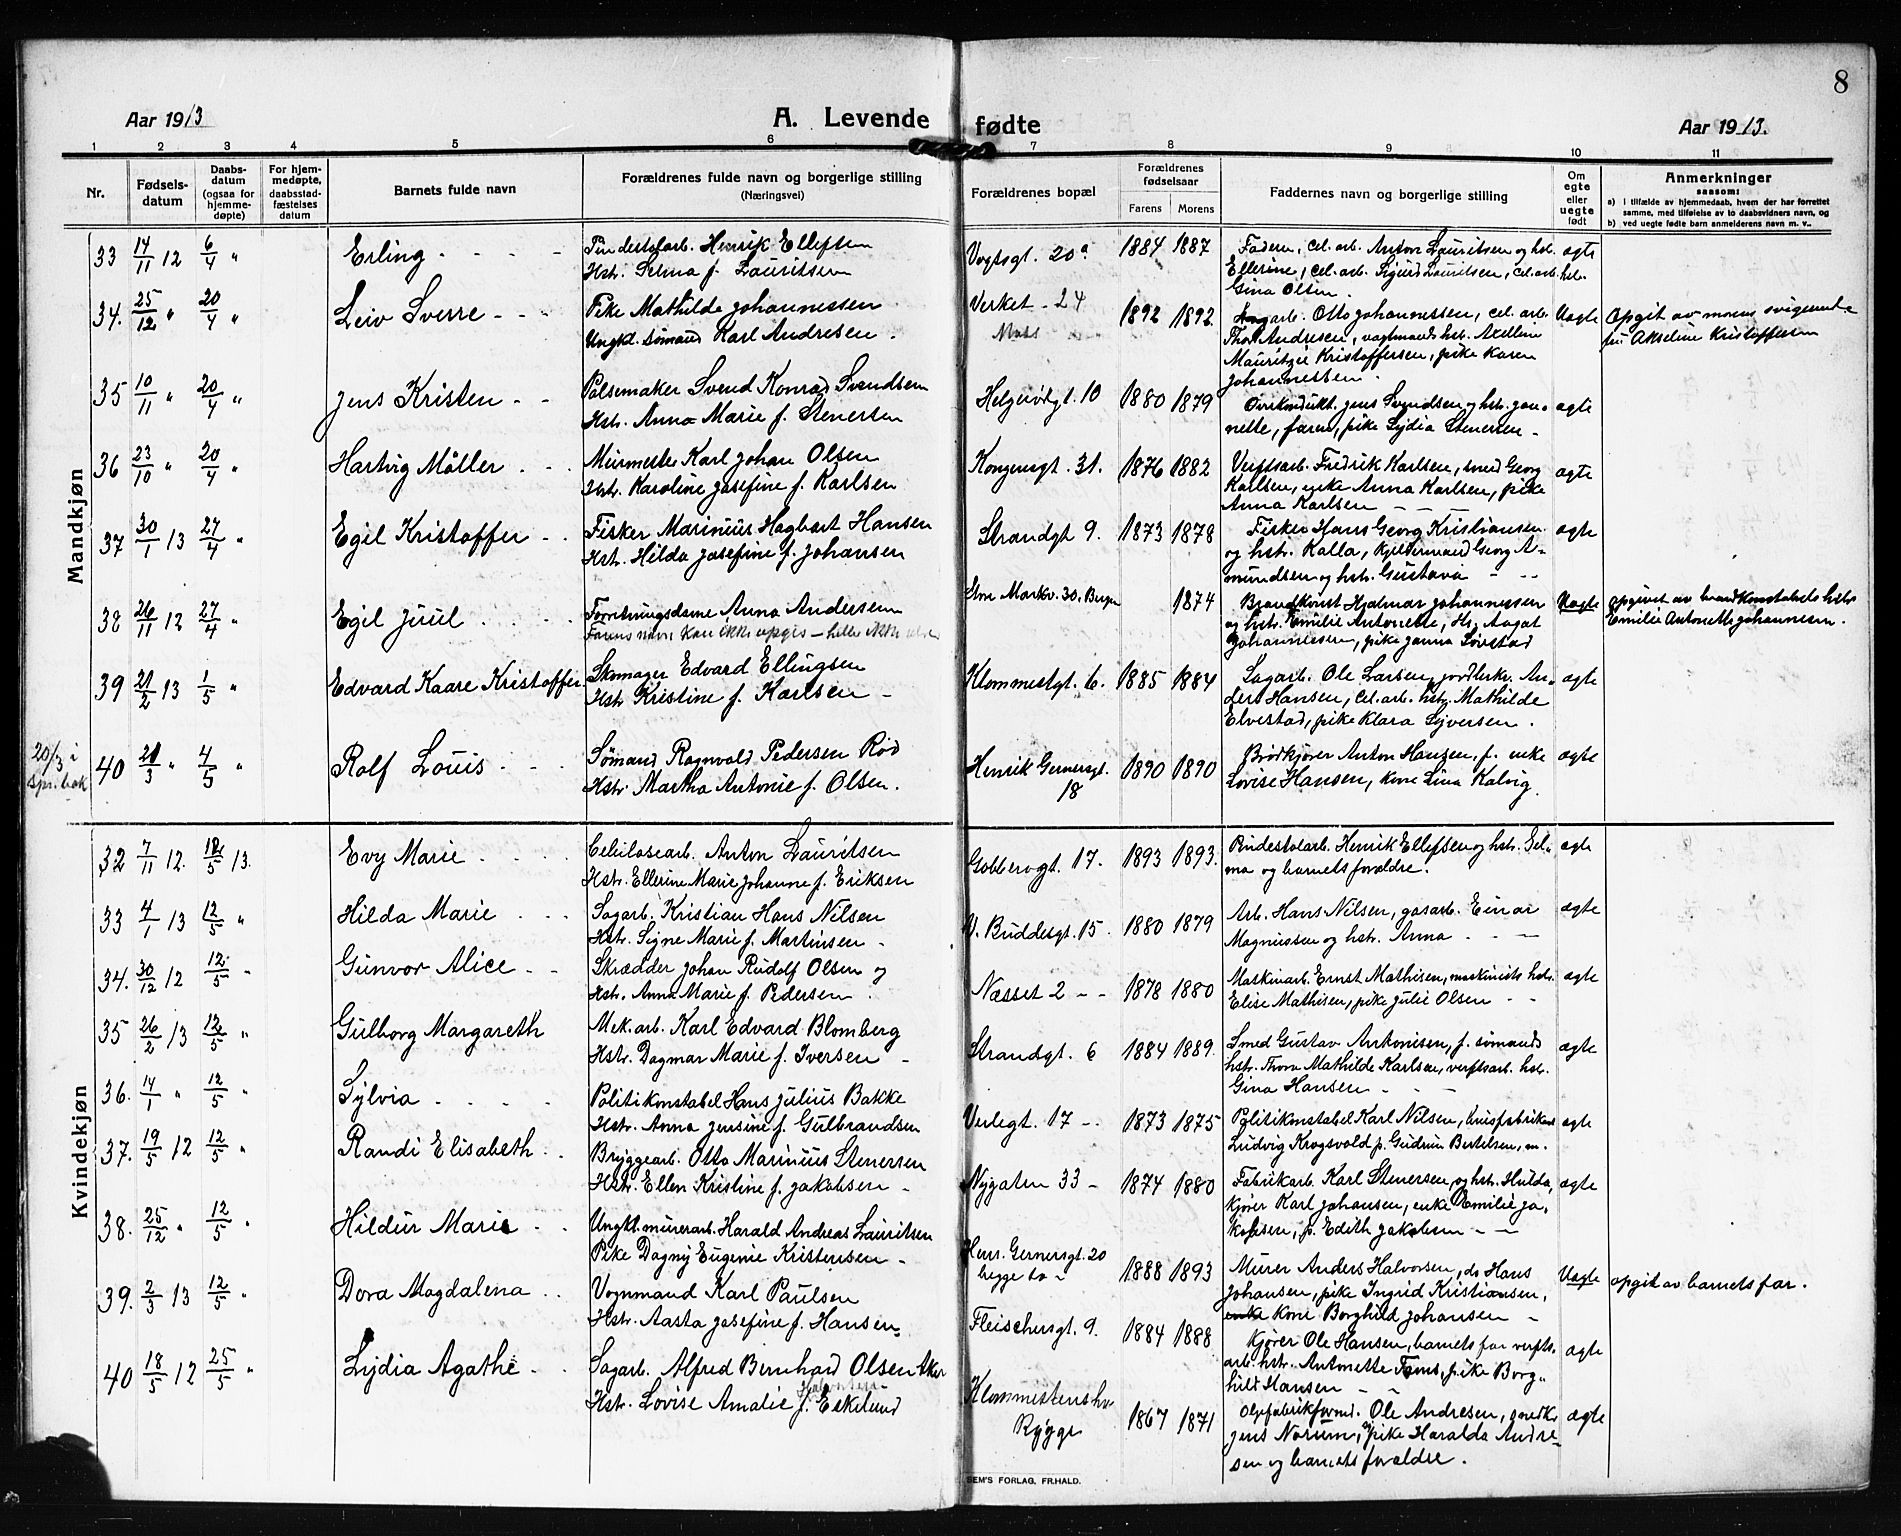 8
Aar 1913 A. Levende fødte Aar 1913.
1 2 3 4 5 6 7 8 9 10 11
Nr. Fødsels-datum Daabs-datum (ogsaa for hjemme-døpte) For hjem-medøpte, daabsstad-fæstelses datum Barnets fulde navn Forældrenes fulde navn og borgerlige stilling (Næringsvei) Forældrenes bopæl Forældrenes fødselsaar Farens Morens Faddernes navn og borgerlige stilling Om egte eller uegte født Anmerkninger saasom:
a) i tilfælde av hjemmedaab, hvem der har forrettet samme, med tilføielse av to daabsvidners navn, og
b) ved uegte fødte barn anmelderens navn m. v.
Mandkjøn
33 14/11 12 6/4 " Erling Pindestolarb. Henrik Ellefsen Vogtsgt. 20a 1884 1887 Faderen, cel. arb. Anton Lauritsen og hst. ægte
Hst. Selma f. Lauritsen Ellerine, cel. arb. Sigurd Lauritsen, cel. arb. hst.
Gina Olsen.
34. 25/12 " 20/4 " Leiv Sverre Pike Mathilde Johannessen Verket 24 1892 1892. arb. Otto Johannessen, cel. arb. Uægte opgit av morens
Ungk. sømand Karl Andresen. Moss Thor Andresen, vagtmands hst. Akseline Kristoffersen
Mauritzie Kristoffersen, pike Karen
Johannessen.
35 10/11 " 20/4 " Jens Kristen Pølsemaker Svend Konrad Svendsen Helgerødgt. 10 1880 1879 Jens Svendsen og hst. Jan- ægte
Hst. Anna Marie f. Stenersen nette, faren, pike Lydia Stenersen
36 23/10 " 20/4 " Hartvig Møller Murmester Karl Johan Olsen Kongensgt. 31. 1876 1882 Verftsarb. Fredrik Karlsen, smed Georg ægte
Hst. Karoline Josefine f. Karlsen Karlsen, enke Anna Karlsen, pike
Anna Karlsen
37 30/1 13 27/4 " Egil Kristoffer Fisker Marinius Hagbart Hansen Strandgt 9. 1873 1878 Fisker Hans Georg Kristiansen ægte
Hst. Hilda Josefine f. Johansen og hst. Kalla, Georg A-
mundsen og hst. Gustava
38 26/11 12 27/4 " Egil Juul Forretningsdame Anna Andersen Store Markv. 30. Bergen 1874 Brandkonst Hjalmar Johannessen Uægte opgivet av brandkonstabels hst.
Farens navn kan ikke opgis – heller ikke alder og hst. Emilie Antonette, Aagot Emilie Antonette Johannesen.
Johannessen, pike Janna
39 21/2 13 1/5 " Edvard Kaare Kristoffer Skomager Edvard Ellingsen Klommestgt. 6. 1885 1884 Sagarb. Ole Larsen, An- ægte
Hst Kristine f. Karlsen ders Hansen, cel. arb. hst. Mathilde
Elvestad, pike Klara Syversen.
20/3 i
40 21/3 " 4/5 " Rolf Louis Sømand Ragnvald Pedersen Rød Henrik Gernersgt. 18 1890 1890 Brødkjører Anton Hansen, f. enke ægte
Hst. Martha Antonie f. Olsen. Lovise Hansen, kone Lina Kalvig.
Kvindekjøn
32 7/11 12. 12/5 13. Evy Marie Celulosearb. Anton Lauritsen Gobbergt. 17. 1893 1893. Pindestolarb. Henrik Ellefsen og hst. Sel- ægte
Hst. Ellerine Marie Johanne f. Eriksen ma og barnets forældre.
33 4/1 13 12/5 " Hilda Marie Sagarb. Kristian Hans Nilsen V. Buddesgt. 15 1880 1879 Arb. Hans Nilsen, gasarb. Einar ægte
Hst. Signe Marie f. Martinsen Magnussen og hst. Anna
34. 30/12 12 12/5 " Gunvor Alice Skrædder Johan Rudolf Olsen og Næsset 2 1878 1880 Maskinarb. Ernst Mathisen, maskinists hst. ægte
Hst. Anna Marie f. Pedersen Elise Mathisen, pike Julie Olsen
35 26/2 13 12/5 " Gulborg Margareth Mek. arb. Karl Edvard Blomberg Strandgt. 6 1884 1889. Smed Gustav Antonisen, f. sømands ægte
Hst. Dagmar Marie f. Iversen hst. Thora Mathilde Karlsen, verftsarb. hst.
Gina Hansen
36. 14/1 " 12/5 " Sylvia Politikonstabel Hans Julius Bakke Verlegt. 17 1873 1875 Politikonstabel Karl Nilsen, ægte
Hst. Anna Jensine f. Gulbrandsen Ludvig Krogsvold p. Gudrun Bertelsen, m.
37. 19/5 12 12/5 " Randi Elisabeth Bryggearb. Otto Marinius Stenersen Nygaten 33 1874 1880 Fabrikarb. Karl Stenersen og hst. Hulda, ægte
Hst. Ellen Kristine f. Jakobsen kjører Karl Johansen, enke Emilie Ja-
kobsen, p. Edith Jakobsen
38. 25/12 " 12/5 " Hildur Marie Ungkt. murerarb. Harald Andreas Lauritsen Henr. Gernersgt. 20 1888 1893 Murer Anders Halvorsen, do Hans Uægte opgit av barnets far.
Pike Dagny Eugenie Kristensen begge to Johansen, pike Ingrid Kristiansen,
enke kone Borghild Johansen
39. 2/3 13 12/5 " Dora Magdalena Vognmand Karl Paulsen Fleischersgt. 9. 1884 1888 Kjører Ole Hansen, barnets far verfts- ægte
Hst. Aasta Josefine f. Hansen arb. hst. Antonette, pike Borg-
hild Hansen
40 18/5 12 25/5 " Lydia Agathe Sagarb. Alfred Bernhard Olsen Aker Klommestenshv. 1867 1871 Ole Andresen, smed ægte
Hst. Lovise Amalie f. Eskelund Rygge Jens Norum, pike Haralda Andre-
sen og barnets forældre.
SEM'S FORLAG, FR.HALD.